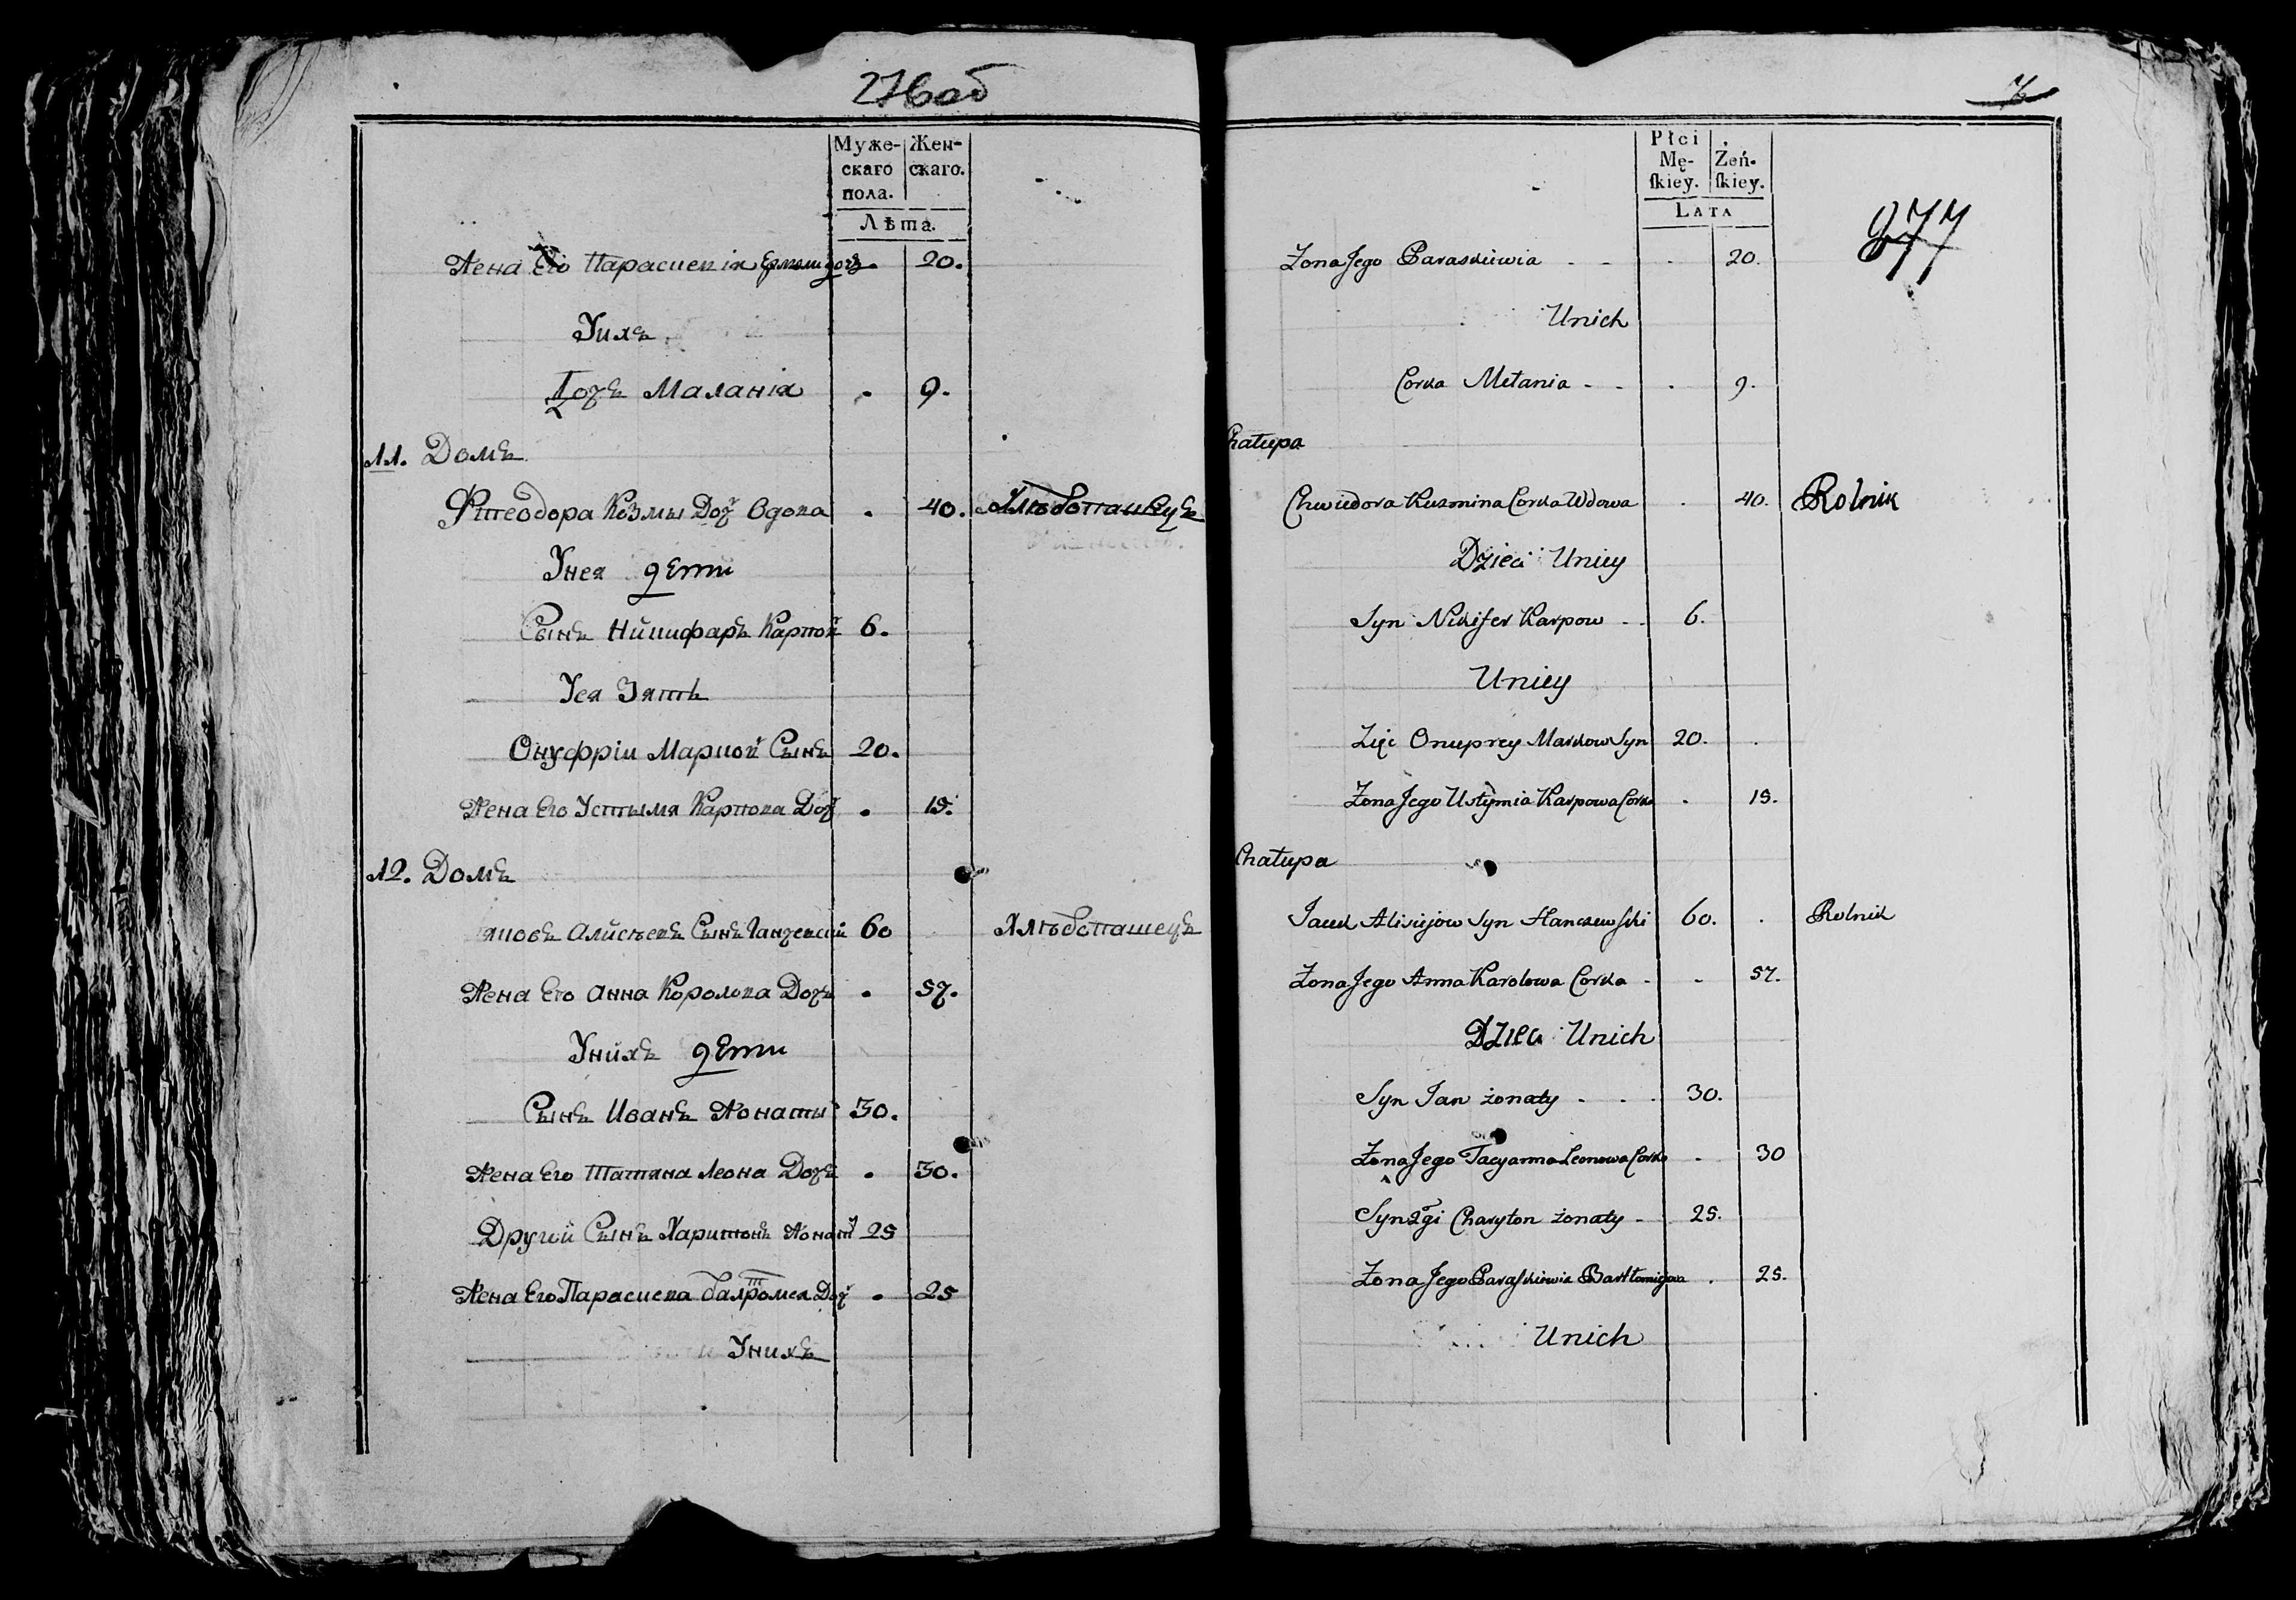 276об
Муже- Жен-
скаго скаго.
пола.
Лѣта.
Жена Его Парасцекія дочь . 20.
Унихъ
Дочъ Маланія . 9.
11. Домъ
Фтеодора Козмы Доч Вдова . 40. Хлѣбопашецъ
Унея дети
Сынъ Никифаръ Карпов 6.
Уея Зять
Онуфрій Марков Сынъ 20.
Жена Его Устымя Карпова Доч . 19.
12. Домъ
Яковъ Алисѣевъ Сынъ Ганчевскій 60 Хлѣбопашецъ
Жена Его Анна Королова Дочъ . 57.
Унихъ дети
Сынъ Иванъ Жонаты 30.
Жена Его Татяна Леона Дочъ . 30.
Другій Сынъ Харитонъ Жонаты 25
Жена Его Параскева Балтромея Доч . 25
Унихъ
7
Płci Żeń-
Mę- ſkiey.
ſkiey.
LATA
277
Zona Jego Paraskiewia - - . 20.
Unich
Corka Mełania - - . 9.
Chałupa
Chwiedora Kuzmina Corka Wdowa . 40. Rolnik
Dzieci Uniey
Syn Nikifer Karpow - - 6.
Uniey
Zięć Onuprey Markow Syn 20. .
Zona Jego Ustymia Karpowa Corka . 19.
Chałupa
Jacek Alisiejow Syn Hanczewſki 60. . Rolnik
Zona Jego Anna Karolowa Corka - - 57.
Dzieci Unich
Syn Jan żonaty - - - 30.
Zona Jego Tacyanna Leonowa Corka . 30
Syn 2gi Charyton żonaty - 25.
Zona Jego Paraſkiewia Bartłomiejowa . 25.
Unich